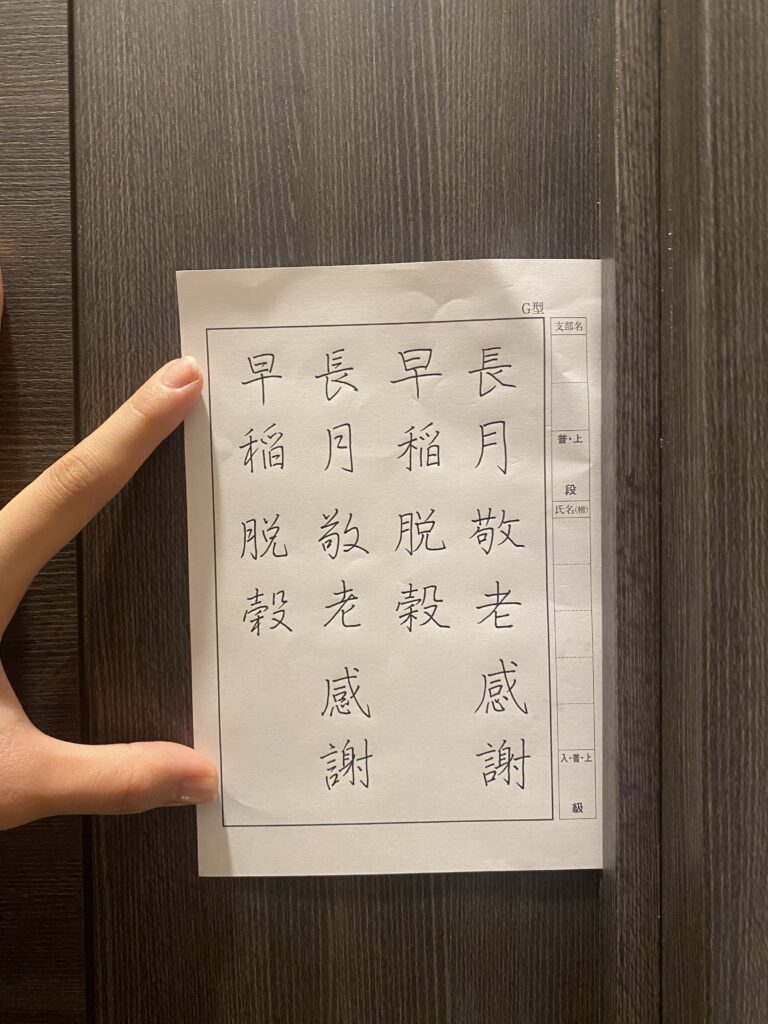 G型
支部名
普・上
段
氏名(楷)
入・普・上
級
長月敬老感謝
早稲脱穀
長月敬老感謝
早稲脱穀